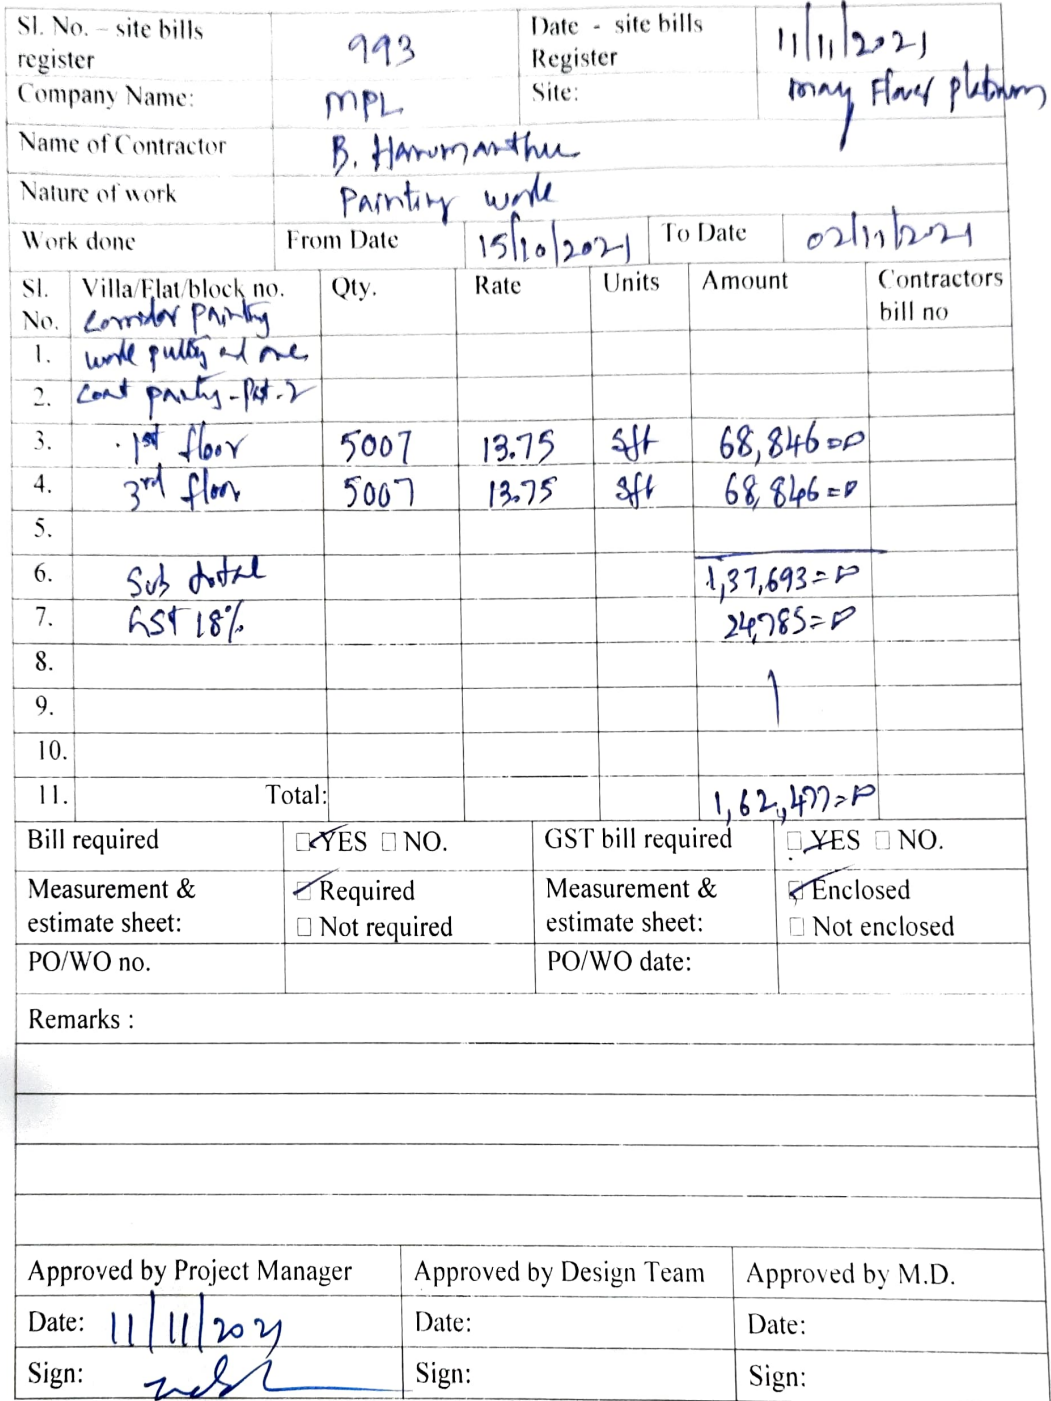 Sl. No. – site bills register 993 Date - site bills Register 11/11/2021
Company Name: MPL Site: may Flower platinum
Name of Contractor B. Hanumanthu
Nature of work Painting work
Work done From Date 15/10/2021 To Date 02/11/2021
Sl. No. Villa/Flat/block no. Qty. Rate Units Amount Contractors bill no
Corridor Painting
1. work putty and one
2. coat painting - Part - 2
3. 1st floor 5007 13.75 Sft 68,846=00
4. 3rd floor 5007 13.75 Sft 68,846=00
5.
6. Sub total 1,37,693=00
7. GST 18% 24,785=00
8.
9.
10.
11. Total: 1,62,477=00
Bill required YES NO. GST bill required YES NO.
Measurement & estimate sheet: Required Measurement & estimate sheet: Enclosed
Not required Not enclosed
PO/WO no. PO/WO date:
Remarks :
Approved by Project Manager Approved by Design Team Approved by M.D.
Date: 11/11/2021 Date: Date:
Sign: Sign: Sign: